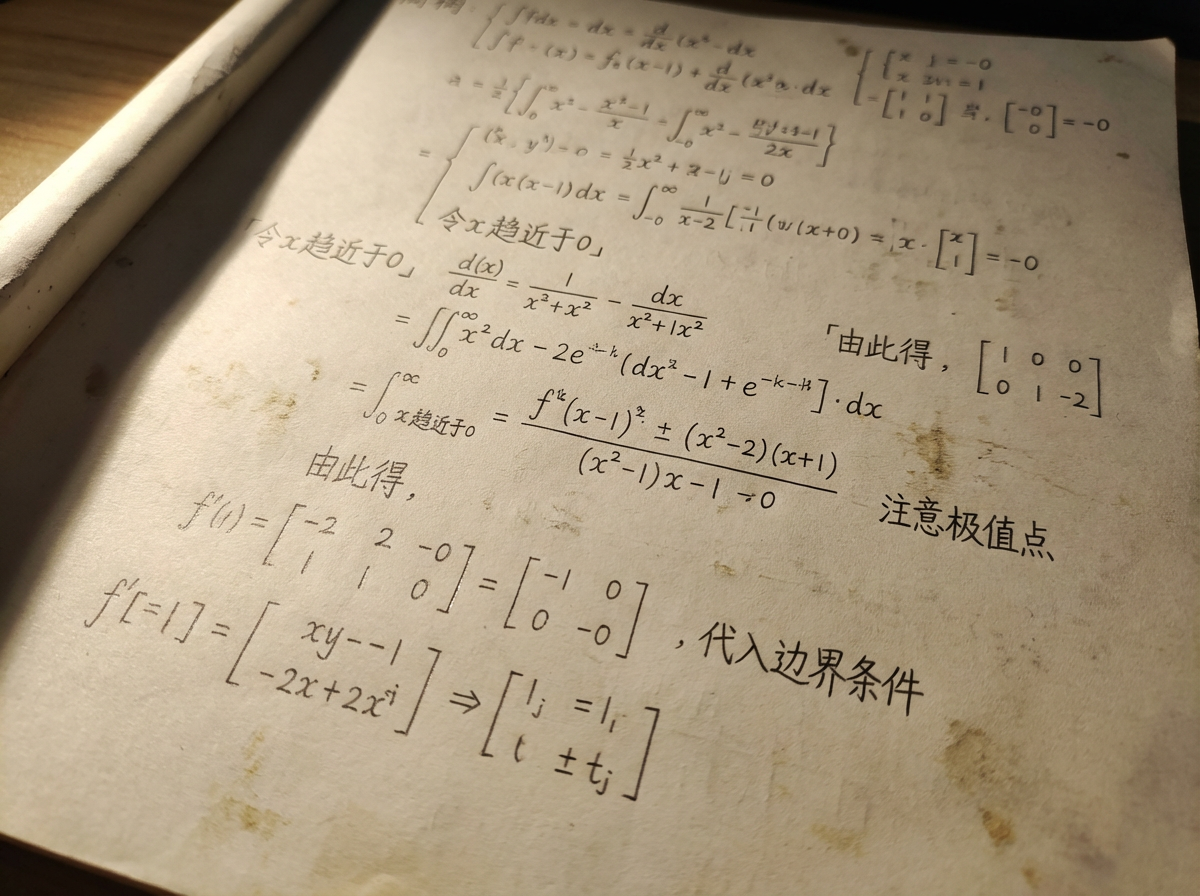 ∫fdx = dx = d/dx (x² - dx
∫f - (x) = f₀(x-1) + d/dx (x²x · dx
{ x j = -0
x = 1
[1 1; 1 0] [-0; 0] = -0
= 1/2 { ∫₀^∞ x² - (x²-1)/x - ∫₋₀^∞ x² - /2x }
= { (x, y) - 0 = 1/2 x² + 2 - y = 0
∫(x(x-1)dx = ∫₋₀^∞ 1/(x-2) [-1/1 (x+0) = x · [x; 1] = -0
令x趋近于0」
「令x趋近于0」 d(x)/dx = 1/(x²+x²) - dx/(x²+1x²)
「由此得, [1 0 0; 0 1 -2]
= ∬₀^∞ x²dx - 2e (dx² - 1 + e^(-k-k)] · dx
= ∫₀^∞ x趋近于0 = (f^k(x-1)² ± (x²-2)(x+1))/((x²-1)x-1 -0)
由此得, 注意极值点
f'(1) = [-2 2 -0; 1 1 0] = [-1 0; 0 -0] , 代入边界条件
f'[=1] = [xy--1; -2x+2x^j] ⇒ [1ⱼ =1₁; t ±tⱼ]